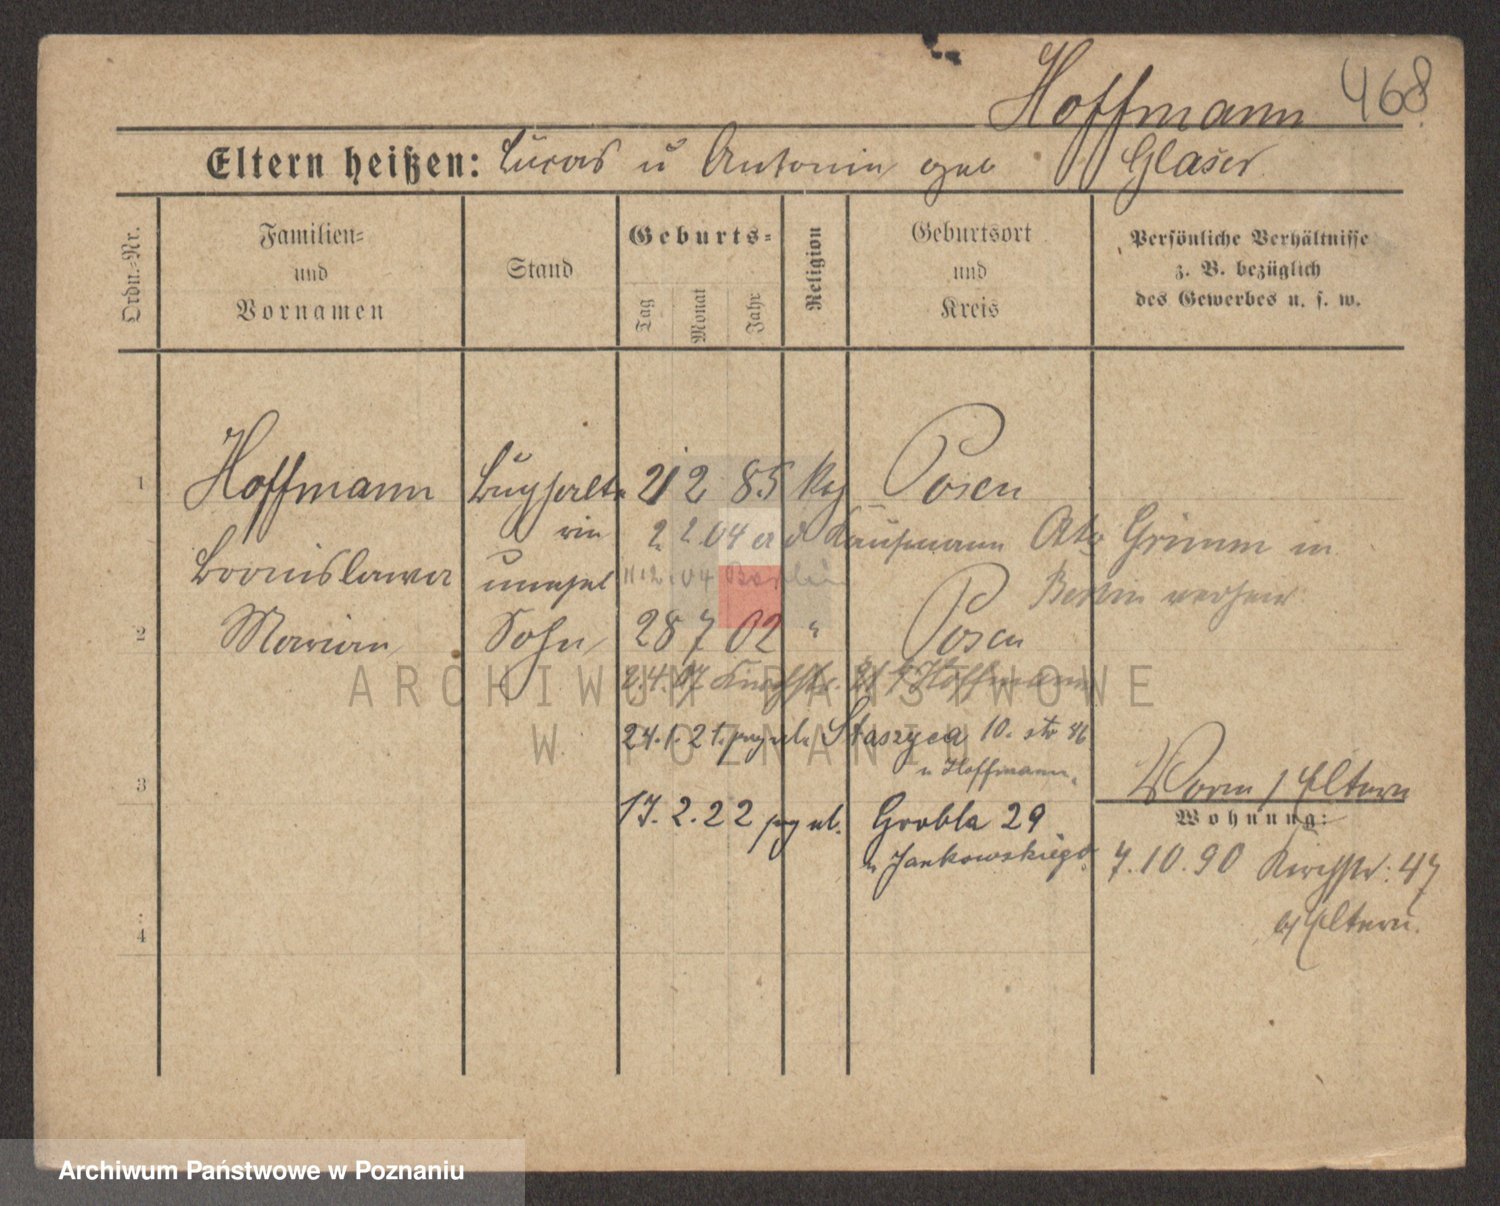 Hoffmann 468
Eltern heißen: Lucas u Antonin geb Glaser
Ordn.-Nr.
Familien- und Vornamen
Stand
Geburts-
Tag
Monat
Jahr
Religion
Geburtsort und Kreis
Persönliche Verhältnisse
z. B. bezüglich
des Gewerbes u. s. w.
1 Hoffmann 21 2 85 Posen
rin 2 2 04 Kaufmann Grimm in
Bronislawa unehel 04 Berlin Berlin
2 Marian Sohn 28 7 02 " Posen
2.4.07 Kirchstr. Hoffmann
24.1.21. Staszyca 10.
u Hoffmann
3 Eltern
Wohnung:
17.2.22 Grobla 29
u Jankowskiego
7.10.90 Kirchstr: 47
Eltern.
4
ARCHIWUM PAŃSTWOWE
W POZNANIU
Archiwum Państwowe w Poznaniu